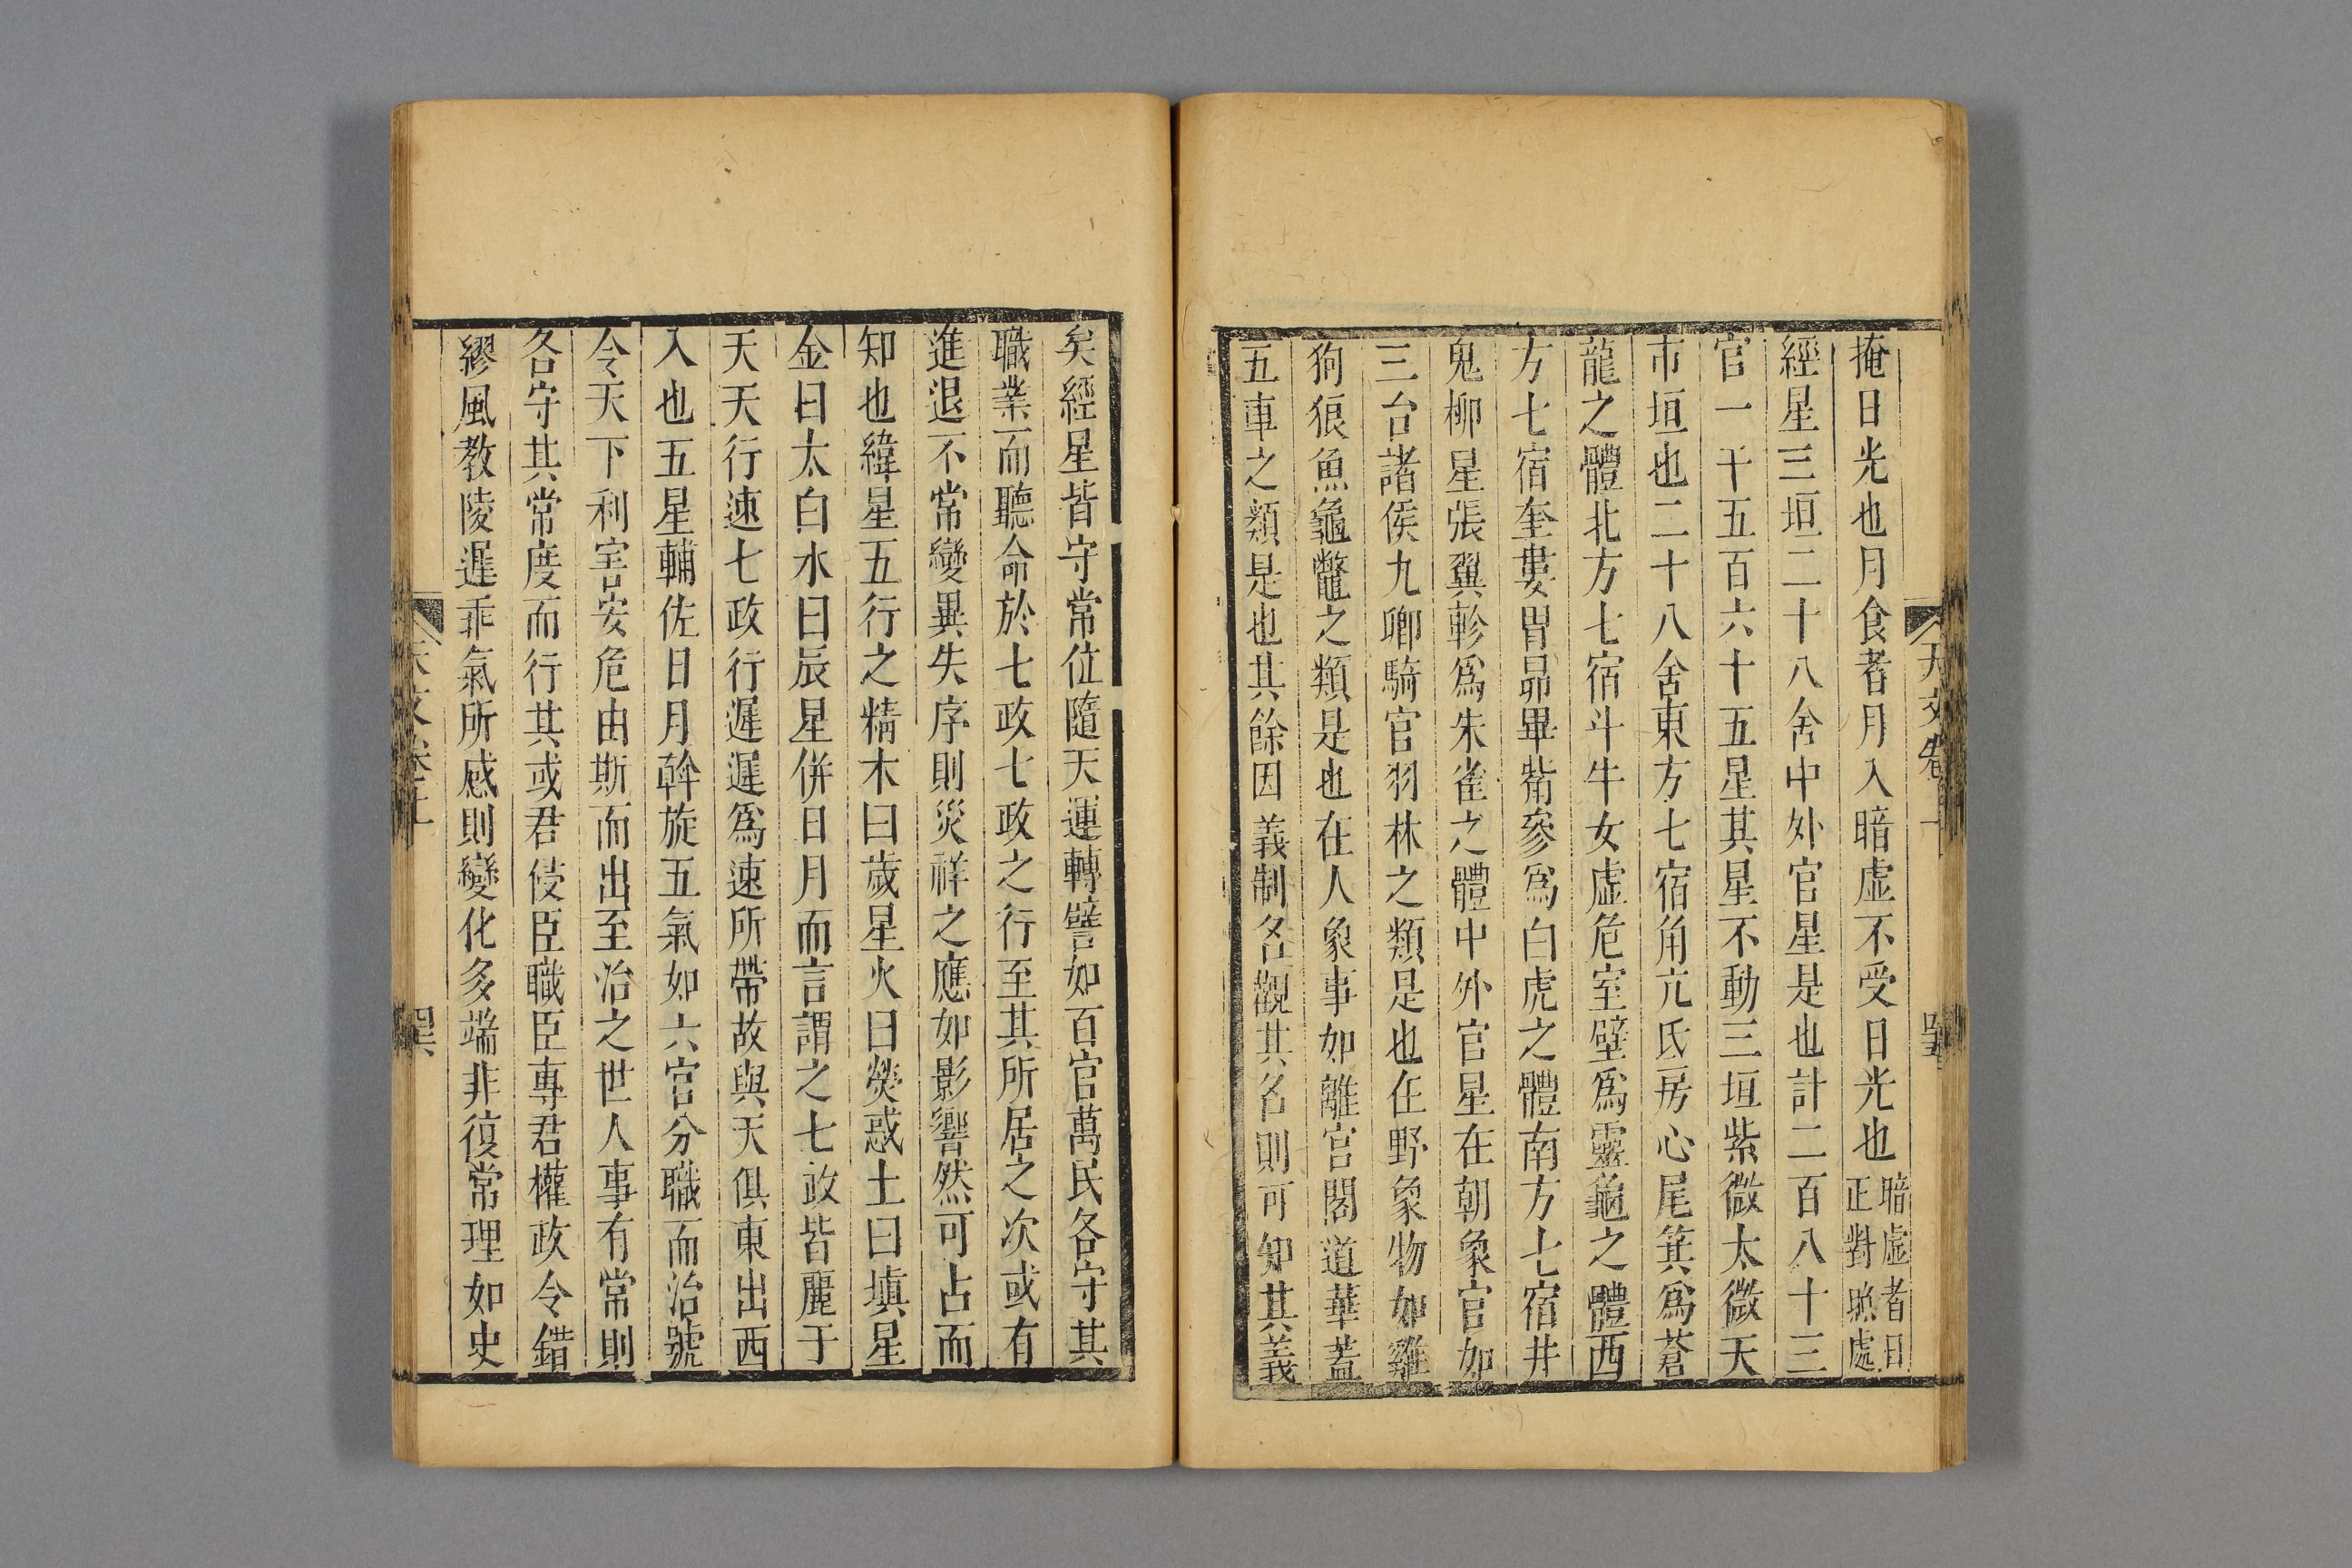 掩日光也月食者月入暗虛不受日光也暗虛者日正對照處
經星三垣二十八舍中外官星是也計二百八十三
官一千五百六十五星其星不動三垣紫微太微天
市垣也二十八舍東方七宿角亢氐房心尾箕爲蒼
龍之體北方七宿斗牛女虛危室壁爲靈龜之體西
方七宿奎婁胃昴畢觜參爲白虎之體南方七宿井
鬼柳星張翼軫爲朱雀之體中外官星在朝象官如
三台諸侯九卿騎官羽林之類是也在野象物如雞
狗狼魚龜鼈之類是也在人象事如離宮閣道華蓋
五車之類是也其餘因義制名觀其名則可知其義
矣經星皆守常位隨天運轉譬如百官萬民各守其
職業而聽命於七政七政之行至其所居之次或有
進退不常變異失序則災祥之應如影響然可占而
知也緯星五行之精木曰歲星火曰熒惑土曰填星
金曰太白水曰辰星併日月而言謂之七政皆麗于
天天行速七政行遲遲爲速所帶故與天俱東出西
入也五星輔佐日月斡旋五氣如六官分職而治號
令天下利害安危由斯而出至治之世人事有常則
各守其常度而行其或君侵臣職臣專君權政令錯
繆風教陵遲乖氣所感則變化多端非復常理如史